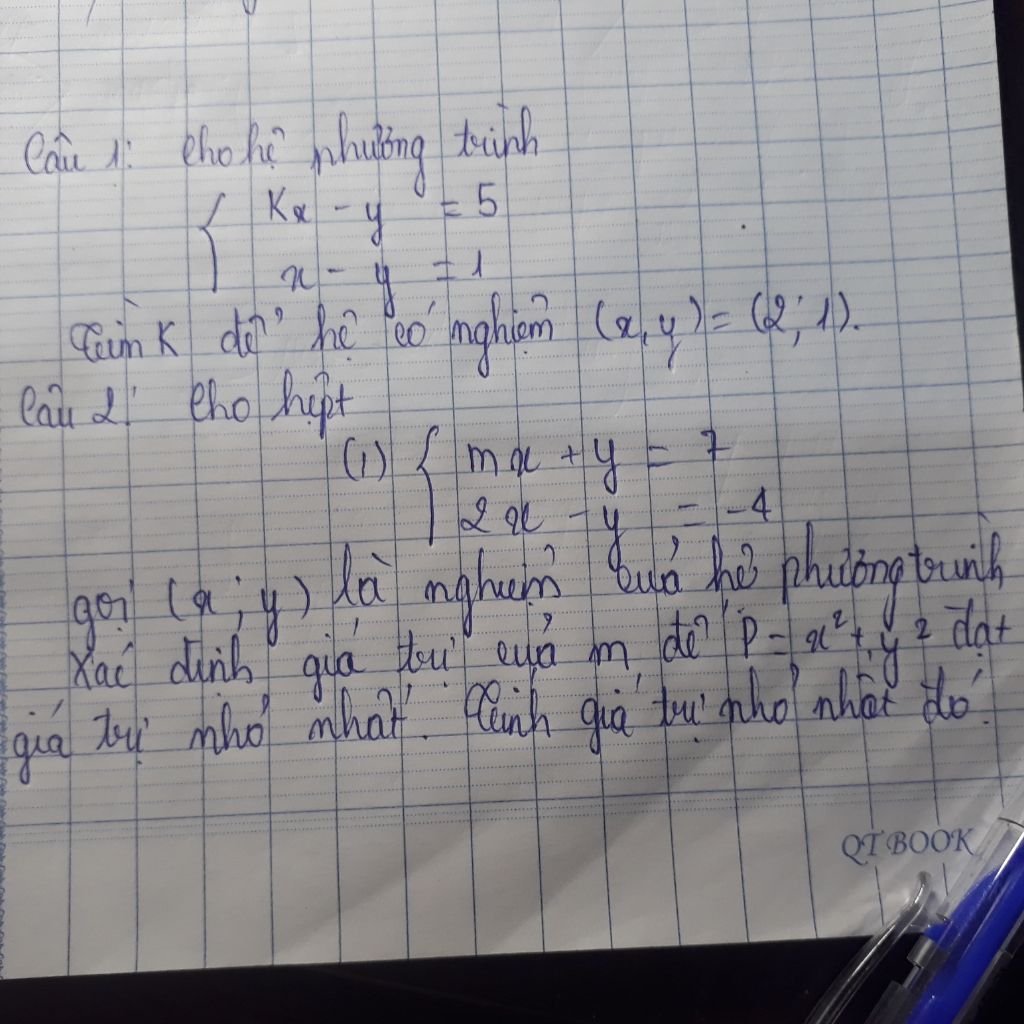 Câu 1: cho hệ phương trình
{ Kx - y = 5
x - y = 1
Tìm K để hệ có nghiệm (x, y) = (2; 1).
Câu 2: cho hệpt
(1) { mx + y = 7
2x - y = -4
gọi (x; y) là nghiệm của hệ phương trình
Xác định giá trị của m để P = x² + y² đạt
giá trị nhỏ nhất. Tính giá trị nhỏ nhất đó.
QT BOOK